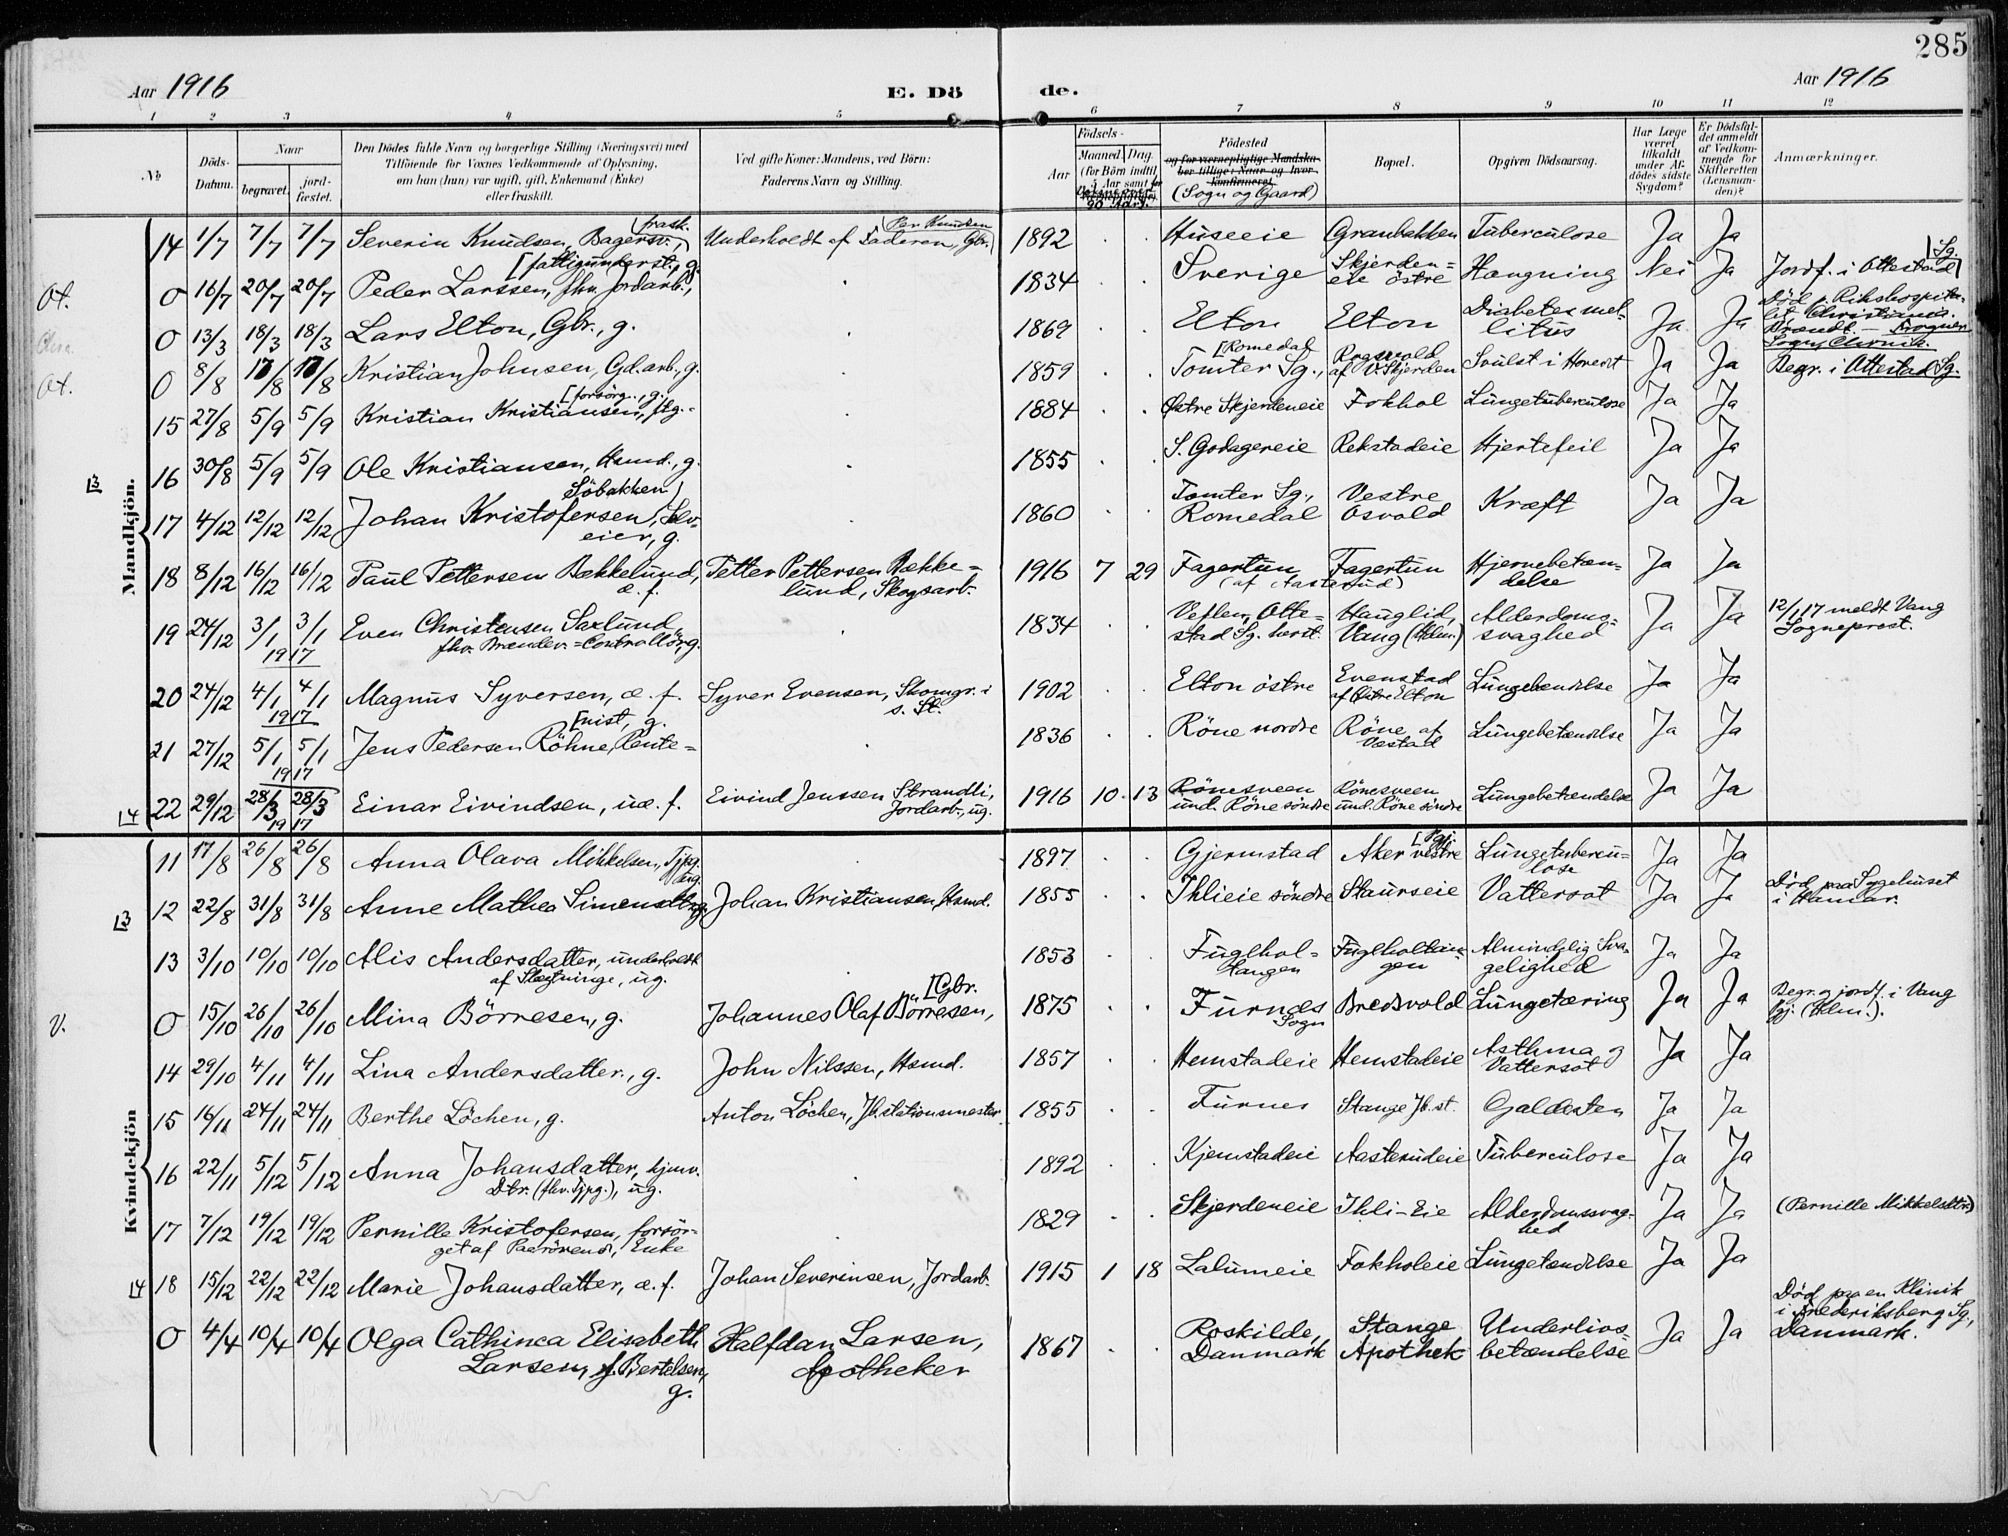 285
Aar 1916
E. Dö
de.
Aar 1916
1 2 3 4 5 6 7 8 9 10 11 12
№
Döds-Datum.
Naar
begravet.
jord-fæstet.
Den Dödes fulde Navn og borgerlige Stilling (Næringsvei) med
Tilföiende for Voxnes Vedkommende af Oplysning,
om han (hun) var ugift, gift, Enkemand (Enke)
eller fraskilt.
Ved gifte Koner: Mandens, ved Börn:
Faderens Navn og Stilling.
Födsels-
Aar
Maaned. Dag.
(for Börn indtil
Födested
og for værnepligtige Mandska-
ber tillige: Naar og hvor
konfirmeret.
(Sogn og Gaard)
Bopæl.
Opgiven Dödsaarsag.
Har Læge været tilkaldt under Af-dödes sidste Sygdom?
Er Dödsfal-det anmeldt af Vedkom-mende for Skifteretten (Lensman-den)?
Anmærkninger.
Mandkjön.
14 1/7 7/7 7/7 Severin Knudsen, Bagersv., frask. Underholdt af Faderen, Per Knudsen Gbr. 1892 Huseeie Granbakken Tuberculose Ja Ja
Ot. 0 16/7 20/7 20/7 Peder Larssen, fhv. Jordarb., [fattigunderst., g. 1834 Sverige Skjerden-eie östre Hængning Nei Ja Jordf. i Ottestad Sg.
0 13/3 18/3 18/3 Lars Elton, Gbr., g. 1869 Elton Elton Diabetes mel-litus Ja Ja Död p. Rikshospita-let Christiania.
Ot. 0 8/8 /8 /8 Kristian Johnsen, Gd.arb., g. 1859 Tomter Sg., [Romedal Rogsvold af V. Skjerden Svulst i Hovedt Ja Ja Begr. i Ottestad Sg.
15 27/8 5/9 5/9 Kristian Kristiansen, flg.- [forsörg., g. 1884 Östre Skjerdeneie Fokhol Lungetuberculose Ja Ja
3 16 30/8 5/9 5/9 Ole Kristiansen, Hsmd., g. 1855 S. Godagereie Rekstadeie Hjertefeil Ja Ja
17 4/12 12/12 12/12 Johan Kristofersen, Selv-eier, g. Söbakken 1860 Tomter Sg., Romedal Vestre Osvold Kræft Ja Ja
18 8/12 16/12 16/12 Paul Pettersen Bækkelund, æ. f. Petter Pettersen Bække-lund, Skogsarb. 1916 7 29 Fagertun Fagertun (af Aasterud) Hjernebetæn-delse Ja Ja
19 24/12 3/1 3/1 1917 Even Christensen Saxlund, fhv. Brændev.=Controllör, g. 1834 Veflen, Otte-stad Sg. herst. Hauglid, Vang (Hdm.) Alderdoms-svaghed Ja Ja 12/1 17 meldt Vang Sogneprest.
20 24/12 4/1 4/1 1917 Magnus Syversen, æ. f. Syver Evensen, Skomgr. i s. St. 1902 Elton östre Evenstad af Östre Elton Lungebetændelse Ja Ja
21 27/12 5/1 5/1 1917 Jens Pedersen Röhne, Rente= [nist, g. 1836 Röne nordre Röne af Væstad Lungebetændelse Ja Ja
4 22 29/12 28/3 28/3 1917 Einar Eivindsen, uæ. f. Eivind Jenssen Strandli, Jordarb., ug. 1916 10 13 Rönesveen und. Röne söndre Rönesveen und. Röne söndre Lungebetændelse Ja Ja
Kvindekjön
11 17/8 26/8 26/8 Anna Olava Mikkelsen, Tjpg. ug. 1897 Gjermstad Aker vestre [Pgj. Lungetubercu-lose Ja Ja
3 12 22/8 31/8 31/8 Anne Mathea Simensdtr., g. Johan Kristiansen, Hsmd. 1855 Ihlieie söndre Staurseie Vattersot Ja Ja Död paa Sygehuset i Hamar.
13 3/10 10/10 10/10 Alis Andersdatter, underholdt af Slægtninge, ug. 1853 Fuglhol-tangen Fuglholtan-gen Almindelig Sva-gelighed Ja Ja
V. 0 15/10 26/10 26/10 Mina Börresen, g. Johannes Olaf Börresen, [Gbr. 1875 Furnes Sogn Bredsvold Lungetæring Ja Ja Begr. og jordf. i Vang gj. (Hdm.).
14 29/10 4/11 4/11 Lina Andersdatter., g. John Nilssen, Hsmd. 1857 Hemstadeie Hemstadeie Asthma og Vattersot Ja Ja
15 16/11 24/11 24/11 Berthe Löchen, g. Anton Löchen, Jb.stationsmester 1855 Furnes Stange Jb.st. Galdesten Ja Ja
16 22/11 5/12 5/12 Anna Johansdatter, hjmv. Dtr. (fhv. Tjpg.), ug. 1892 Kjemstadeie Aasterudeie Tuberculose Ja Ja
17 7/12 19/12 19/12 Pernille Kristofersen, forsör-get af Paarörende, Enke 1829 Skjerdeneie Ihli-Eie Alderdomssvag-hed Ja Ja (Pernille Mikkelsdtr.)
4 18 15/12 22/12 22/12 Marie Johansdatter, æ. f. Johan Severinsen, Jordarb. 1915 1 18 Lalumeie Fokholeie Lungetændelse Ja Ja
0 4/4 10/4 10/4 Olga Cathinca Elisabeth Larsen, f. Bertelsen, g. Halfdan Larsen, Apotheker 1867 Roskilde, Danmark Stange Apothek Underlivs-betændelse Ja Ja Död paa en Klinik i Frederiksberg Sg., Danmark.